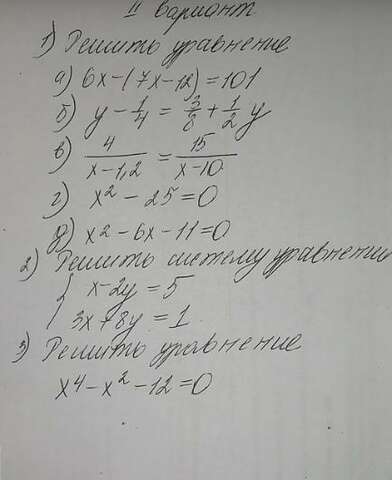 II вариант
1) Решить уравнение
а) 6x-(7x-12)=101
б) y - 1/4 = 3/8 + 1/2 y
в) 4/(x-1,2) = 15/(x-10)
г) x² - 25=0
д) x² - 6x - 11=0
2) Решить систему уравнений
{ x-2y = 5
3x+8y = 1
3) Решить уравнение
x⁴ - x² - 12=0